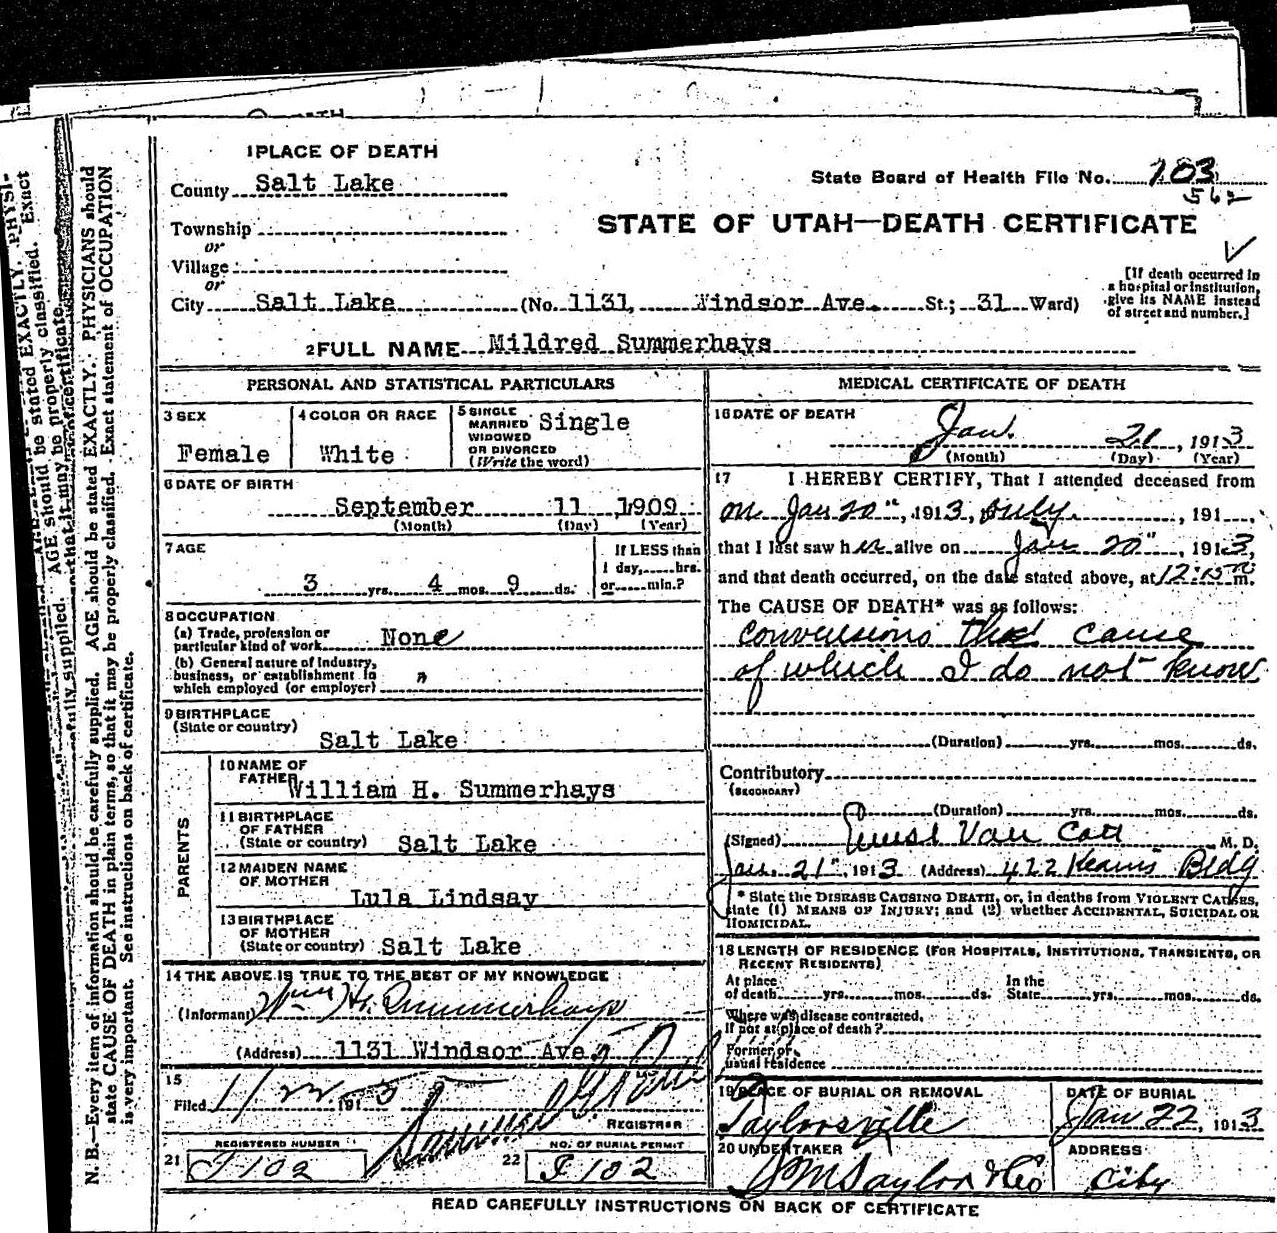 1 PLACE OF DEATH
County Salt Lake
State Board of Health File No. 103
562
STATE OF UTAH—DEATH CERTIFICATE
Township
or
Village
or
City Salt Lake (No. 1131, Windsor Ave. St.; 31 Ward)
[If death occurred in a hospital or institution, give its NAME instead of street and number.]
2 FULL NAME Mildred Summerhays
PERSONAL AND STATISTICAL PARTICULARS
3 SEX
Female
4 COLOR OR RACE
White
5 SINGLE
MARRIED
WIDOWED
OR DIVORCED
(Write the word)
Single
6 DATE OF BIRTH
September 11 1909
(Month) (Day) (Year)
7 AGE
3 yrs. 4 mos. 9 ds.
If LESS than
1 day, hrs.
or min.?
8 OCCUPATION
(a) Trade, profession or
particular kind of work None
(b) General nature of industry,
business, or establishment in
which employed (or employer) "
9 BIRTHPLACE
(State or country)
Salt Lake
PARENTS
10 NAME OF
FATHER William H. Summerhays
11 BIRTHPLACE
OF FATHER
(State or country) Salt Lake
12 MAIDEN NAME
OF MOTHER
Lula Lindsay
13 BIRTHPLACE
OF MOTHER
(State or country) Salt Lake
14 THE ABOVE IS TRUE TO THE BEST OF MY KNOWLEDGE
(Informant) Wm H. Summerhays
(Address) 1131 Windsor Ave.
15
Filed 1/22 191 3
REGISTRAR
REGISTERED NUMBER
21 J 102
NO. OF BURIAL PERMIT
22 J 102
MEDICAL CERTIFICATE OF DEATH
16 DATE OF DEATH
Jan. 21, 1913
(Month) (Day) (Year)
17 I HEREBY CERTIFY, That I attended deceased from
on Jan 20", 1913, only, 191
that I last saw her alive on Jan 20", 1913,
and that death occurred, on the date stated above, at 12:15 m.
The CAUSE OF DEATH* was as follows:
Convulsions the cause
of which I do not know
(Duration) yrs. mos. ds.
Contributory
(SECONDARY)
(Duration) yrs. mos. ds.
(Signed) Ernest Van Cott M. D.
Jan. 21", 1913 (Address) 422 Kearns Bldg
* State the DISEASE CAUSING DEATH, or, in deaths from VIOLENT CAUSES,
state (1) MEANS OF INJURY; and (2) whether ACCIDENTAL, SUICIDAL OR
HOMICIDAL.
18 LENGTH OF RESIDENCE (FOR HOSPITALS, INSTITUTIONS, TRANSIENTS, OR
RECENT RESIDENTS)
At place
of death yrs. mos. ds.
In the
State yrs. mos. ds.
Where was disease contracted,
If not at place of death?
Former or
usual residence
19 PLACE OF BURIAL OR REMOVAL
Taylorsville
DATE OF BURIAL
Jan 22, 1913
20 UNDERTAKER
S M Taylor & Co
ADDRESS
City
READ CAREFULLY INSTRUCTIONS ON BACK OF CERTIFICATE
N. B.—Every item of information should be carefully supplied. AGE should be stated EXACTLY. PHYSICIANS should
state CAUSE OF DEATH in plain terms, so that it may be properly classified. Exact statement of OCCUPATION
is very important. See instructions on back of certificate.